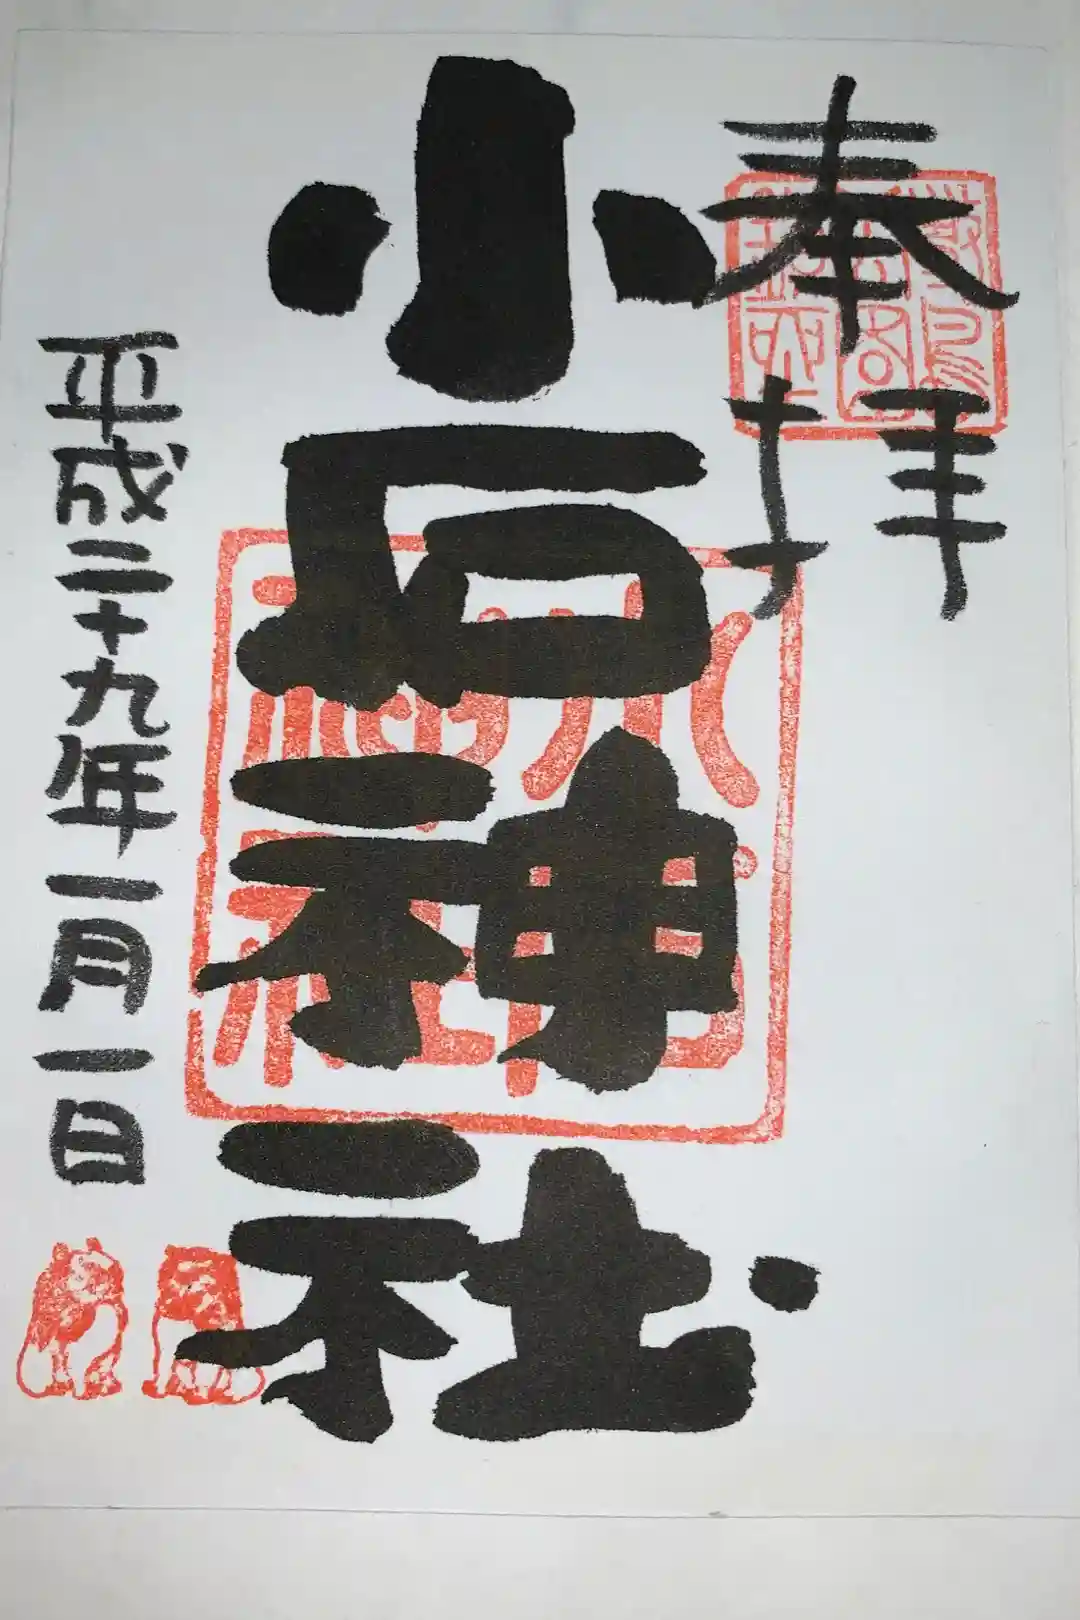 奉拝
小石神社
平成二十九年一月一日